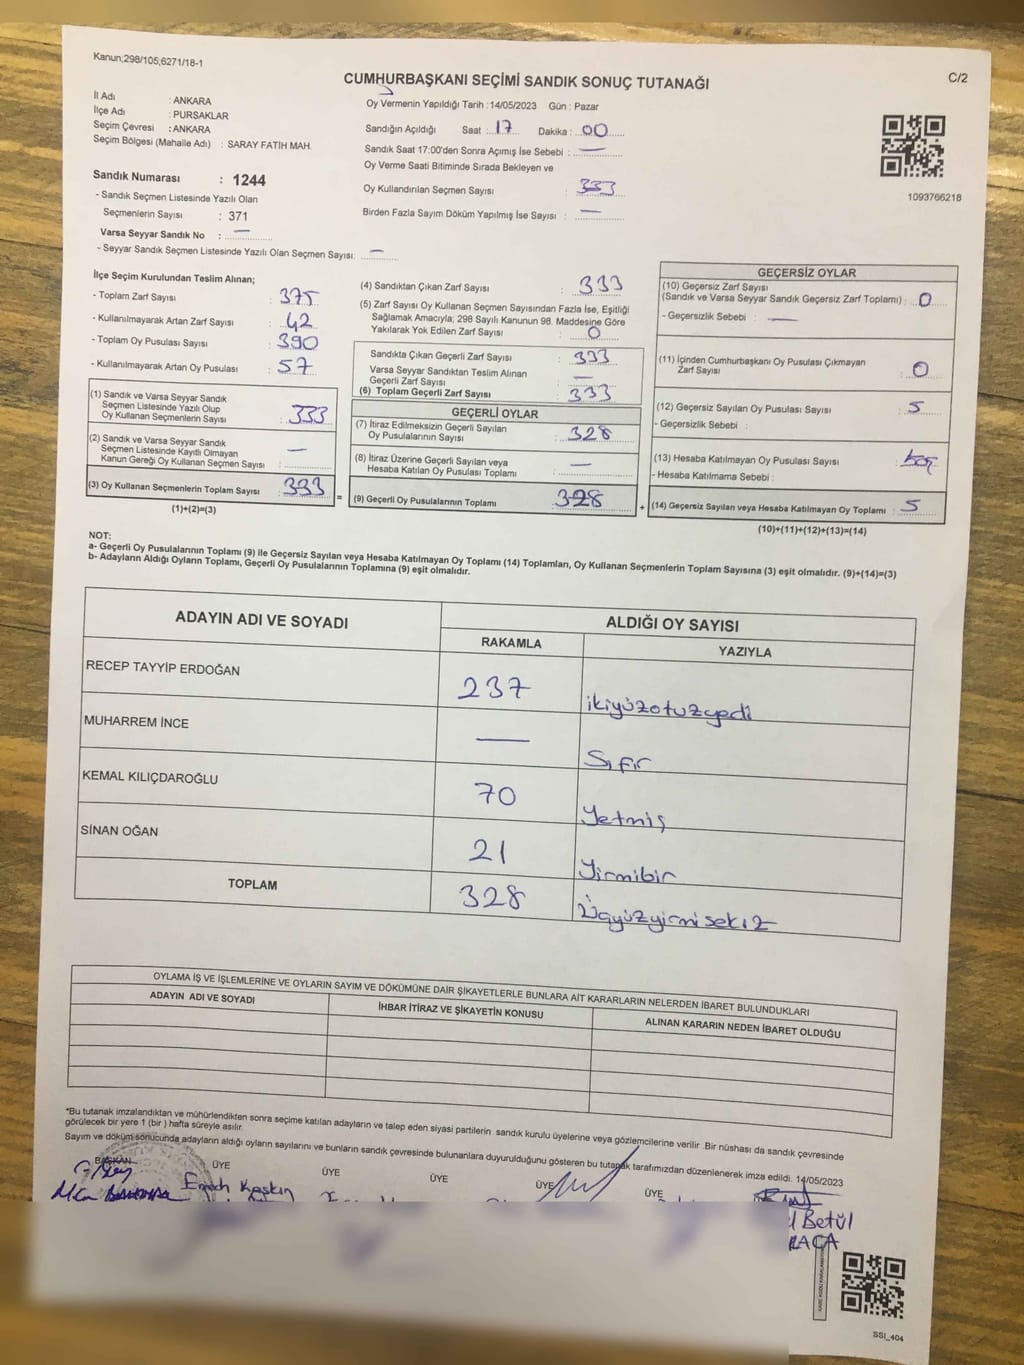 Kanun;298/105;6271/18-1
C/2
CUMHURBAŞKANI SEÇİMİ SANDIK SONUÇ TUTANAĞI
İl Adı : ANKARA
İlçe Adı : PURSAKLAR
Seçim Çevresi : ANKARA
Seçim Bölgesi (Mahalle Adı) : SARAY FATİH MAH.
Sandık Numarası : 1244
- Sandık Seçmen Listesinde Yazılı Olan
Seçmenlerin Sayısı : 371
Varsa Seyyar Sandık No : —
- Seyyar Sandık Seçmen Listesinde Yazılı Olan Seçmen Sayısı: —
Oy Vermenin Yapıldığı Tarih : 14/05/2023 Gün : Pazar
Sandığın Açıldığı Saat : 17 Dakika : 00
Sandık Saat 17:00'den Sonra Açımış İse Sebebi : —
Oy Verme Saati Bitiminde Sırada Bekleyen ve
Oy Kullandırılan Seçmen Sayısı : 333
Birden Fazla Sayım Döküm Yapılmış İse Sayısı : —
1093766218
İlçe Seçim Kurulundan Teslim Alınan;
- Toplam Zarf Sayısı : 375
- Kullanılmayarak Artan Zarf Sayısı : 42
- Toplam Oy Pusulası Sayısı : 390
- Kullanılmayarak Artan Oy Pusulası : 57
(1) Sandık ve Varsa Seyyar Sandık
Seçmen Listesinde Yazılı Olup
Oy Kullanan Seçmenlerin Sayısı : 333
(2) Sandık ve Varsa Seyyar Sandık
Seçmen Listesinde Kayıtlı Olmayan
Kanun Gereği Oy Kullanan Seçmen Sayısı : —
(3) Oy Kullanan Seçmenlerin Toplam Sayısı : 333
(1)+(2)=(3)
(4) Sandıktan Çıkan Zarf Sayısı : 333
(5) Zarf Sayısı Oy Kullanan Seçmen Sayısından Fazla İse, Eşitliği
Sağlamak Amacıyla; 298 Sayılı Kanunun 98. Maddesine Göre
Yakılarak Yok Edilen Zarf Sayısı : 0
Sandıkta Çıkan Geçerli Zarf Sayısı : 333
Varsa Seyyar Sandıktan Teslim Alınan
Geçerli Zarf Sayısı : —
(6) Toplam Geçerli Zarf Sayısı : 333
GEÇERLİ OYLAR
(7) İtiraz Edilmeksizin Geçerli Sayılan
Oy Pusulalarının Sayısı : 328
(8) İtiraz Üzerine Geçerli Sayılan veya
Hesaba Katılan Oy Pusulası Toplamı : —
= (9) Geçerli Oy Pusulalarının Toplamı 328
GEÇERSİZ OYLAR
(10) Geçersiz Zarf Sayısı
(Sandık ve Varsa Seyyar Sandık Geçersiz Zarf Toplamı) : 0
- Geçersizlik Sebebi : —
(11) İçinden Cumhurbaşkanı Oy Pusulası Çıkmayan
Zarf Sayısı : 0
(12) Geçersiz Sayılan Oy Pusulası Sayısı : 5
- Geçersizlik Sebebi :
(13) Hesaba Katılmayan Oy Pusulası Sayısı :
- Hesaba Katılmama Sebebi :
+ (14) Geçersiz Sayılan veya Hesaba Katılmayan Oy Toplamı : 5
(10)+(11)+(12)+(13)=(14)
NOT:
a- Geçerli Oy Pusulalarının Toplamı (9) ile Geçersiz Sayılan veya Hesaba Katılmayan Oy Toplamı (14) Toplamları, Oy Kullanan Seçmenlerin Toplam Sayısına (3) eşit olmalıdır. (9)+(14)=(3)
b- Adayların Aldığı Oyların Toplamı, Geçerli Oy Pusulalarının Toplamına (9) eşit olmalıdır.
ADAYIN ADI VE SOYADI ALDIĞI OY SAYISI
RAKAMLA YAZIYLA
RECEP TAYYİP ERDOĞAN 237 ikiyüzotuzyedi
MUHARREM İNCE — Sıfır
KEMAL KILIÇDAROĞLU 70 Yetmiş
SİNAN OĞAN 21 Yirmibir
TOPLAM 328 Üçyüzyirmisekiz
OYLAMA İŞ VE İŞLEMLERİNE VE OYLARIN SAYIM VE DÖKÜMÜNE DAİR ŞİKAYETLERLE BUNLARA AİT KARARLARIN NELERDEN İBARET BULUNDUKLARI
ADAYIN ADI VE SOYADI İHBAR İTİRAZ VE ŞİKAYETİN KONUSU ALINAN KARARIN NEDEN İBARET OLDUĞU
*Bu tutanak imzalandıktan ve mühürlendikten sonra seçime katılan adayların ve talep eden siyasi partilerin sandık kurulu üyelerine veya gözlemcilerine verilir .Bir nüshası da sandık çevresinde
görülecek bir yere 1 (bir ) hafta süreyle asılır.
Sayım ve döküm sonucunda adayların aldığı oyların sayılarını ve bunların sandık çevresinde bulunanlara duyurulduğunu gösteren bu tutanak tarafımızdan düzenlenerek imza edildi. 14/05/2023
BAŞKAN ÜYE ÜYE ÜYE ÜYE ÜYE
Keskin
Betül
SSI_404